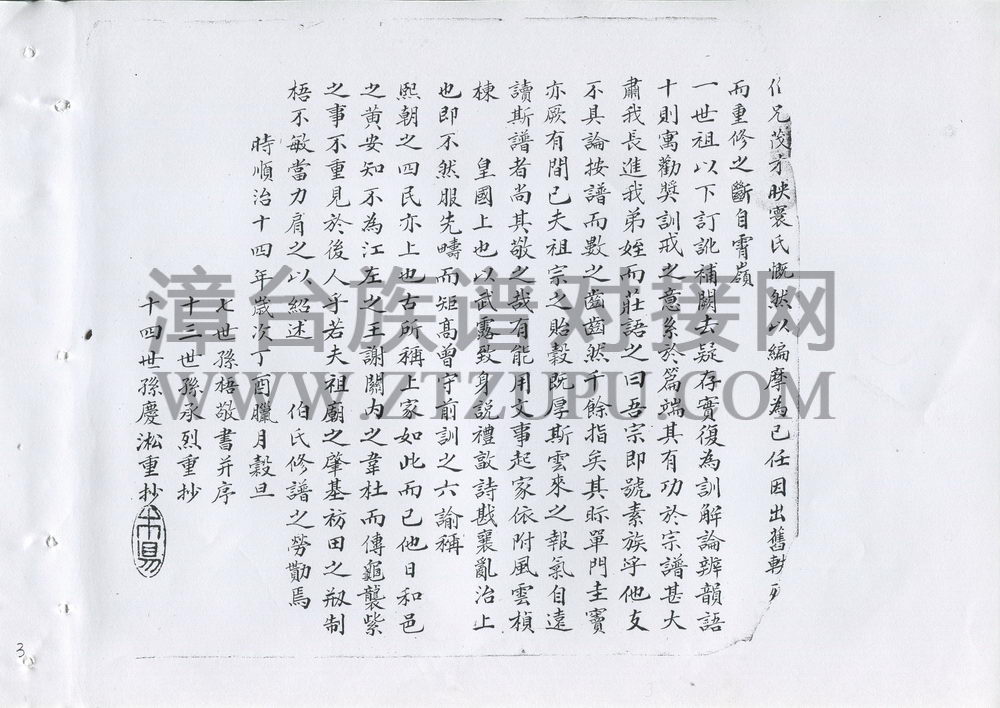 兄茂才映寰氏慨然以編摩為己任因出舊
而重修之斷自霄嶺
一世祖以下訂訛補闕去疑存實復為訓解論辨韻語
十則寓勸獎訓戒之意系於篇端其有功於宗譜甚大
肅我長進我弟姪而莊語之曰吾宗即號素族乎他支
不具論按譜而數之齒齒然千餘指矣其際單門圭竇
亦厥有間已夫祖宗之貽穀既厚斯雲來之報氣自遠
讀斯譜者尚其敬之哉有能用文事起家依附風雲楨
棟 皇國上也以武露致身説禮敦詩戡襄亂治上
也即不然服先疇而矩高曾守前訓之六諭稱
熙朝之四民亦上也古所稱上家如此而已他日和邑
之黃安知不為江左之王謝關内之韋杜而傳龜襲紫
之事不重見於後人乎若夫祖廟之肇基祊田之剏制
梧不敏當力肩之以紹述 伯氏修譜之勞勩焉
時順治十四年歲次丁酉臘月穀旦
七世孫梧敬書并序
十三世孫承烈重抄
十四世孫慶淞重抄
漳台族谱对接网
WWW.ZTZUPU.COM
3